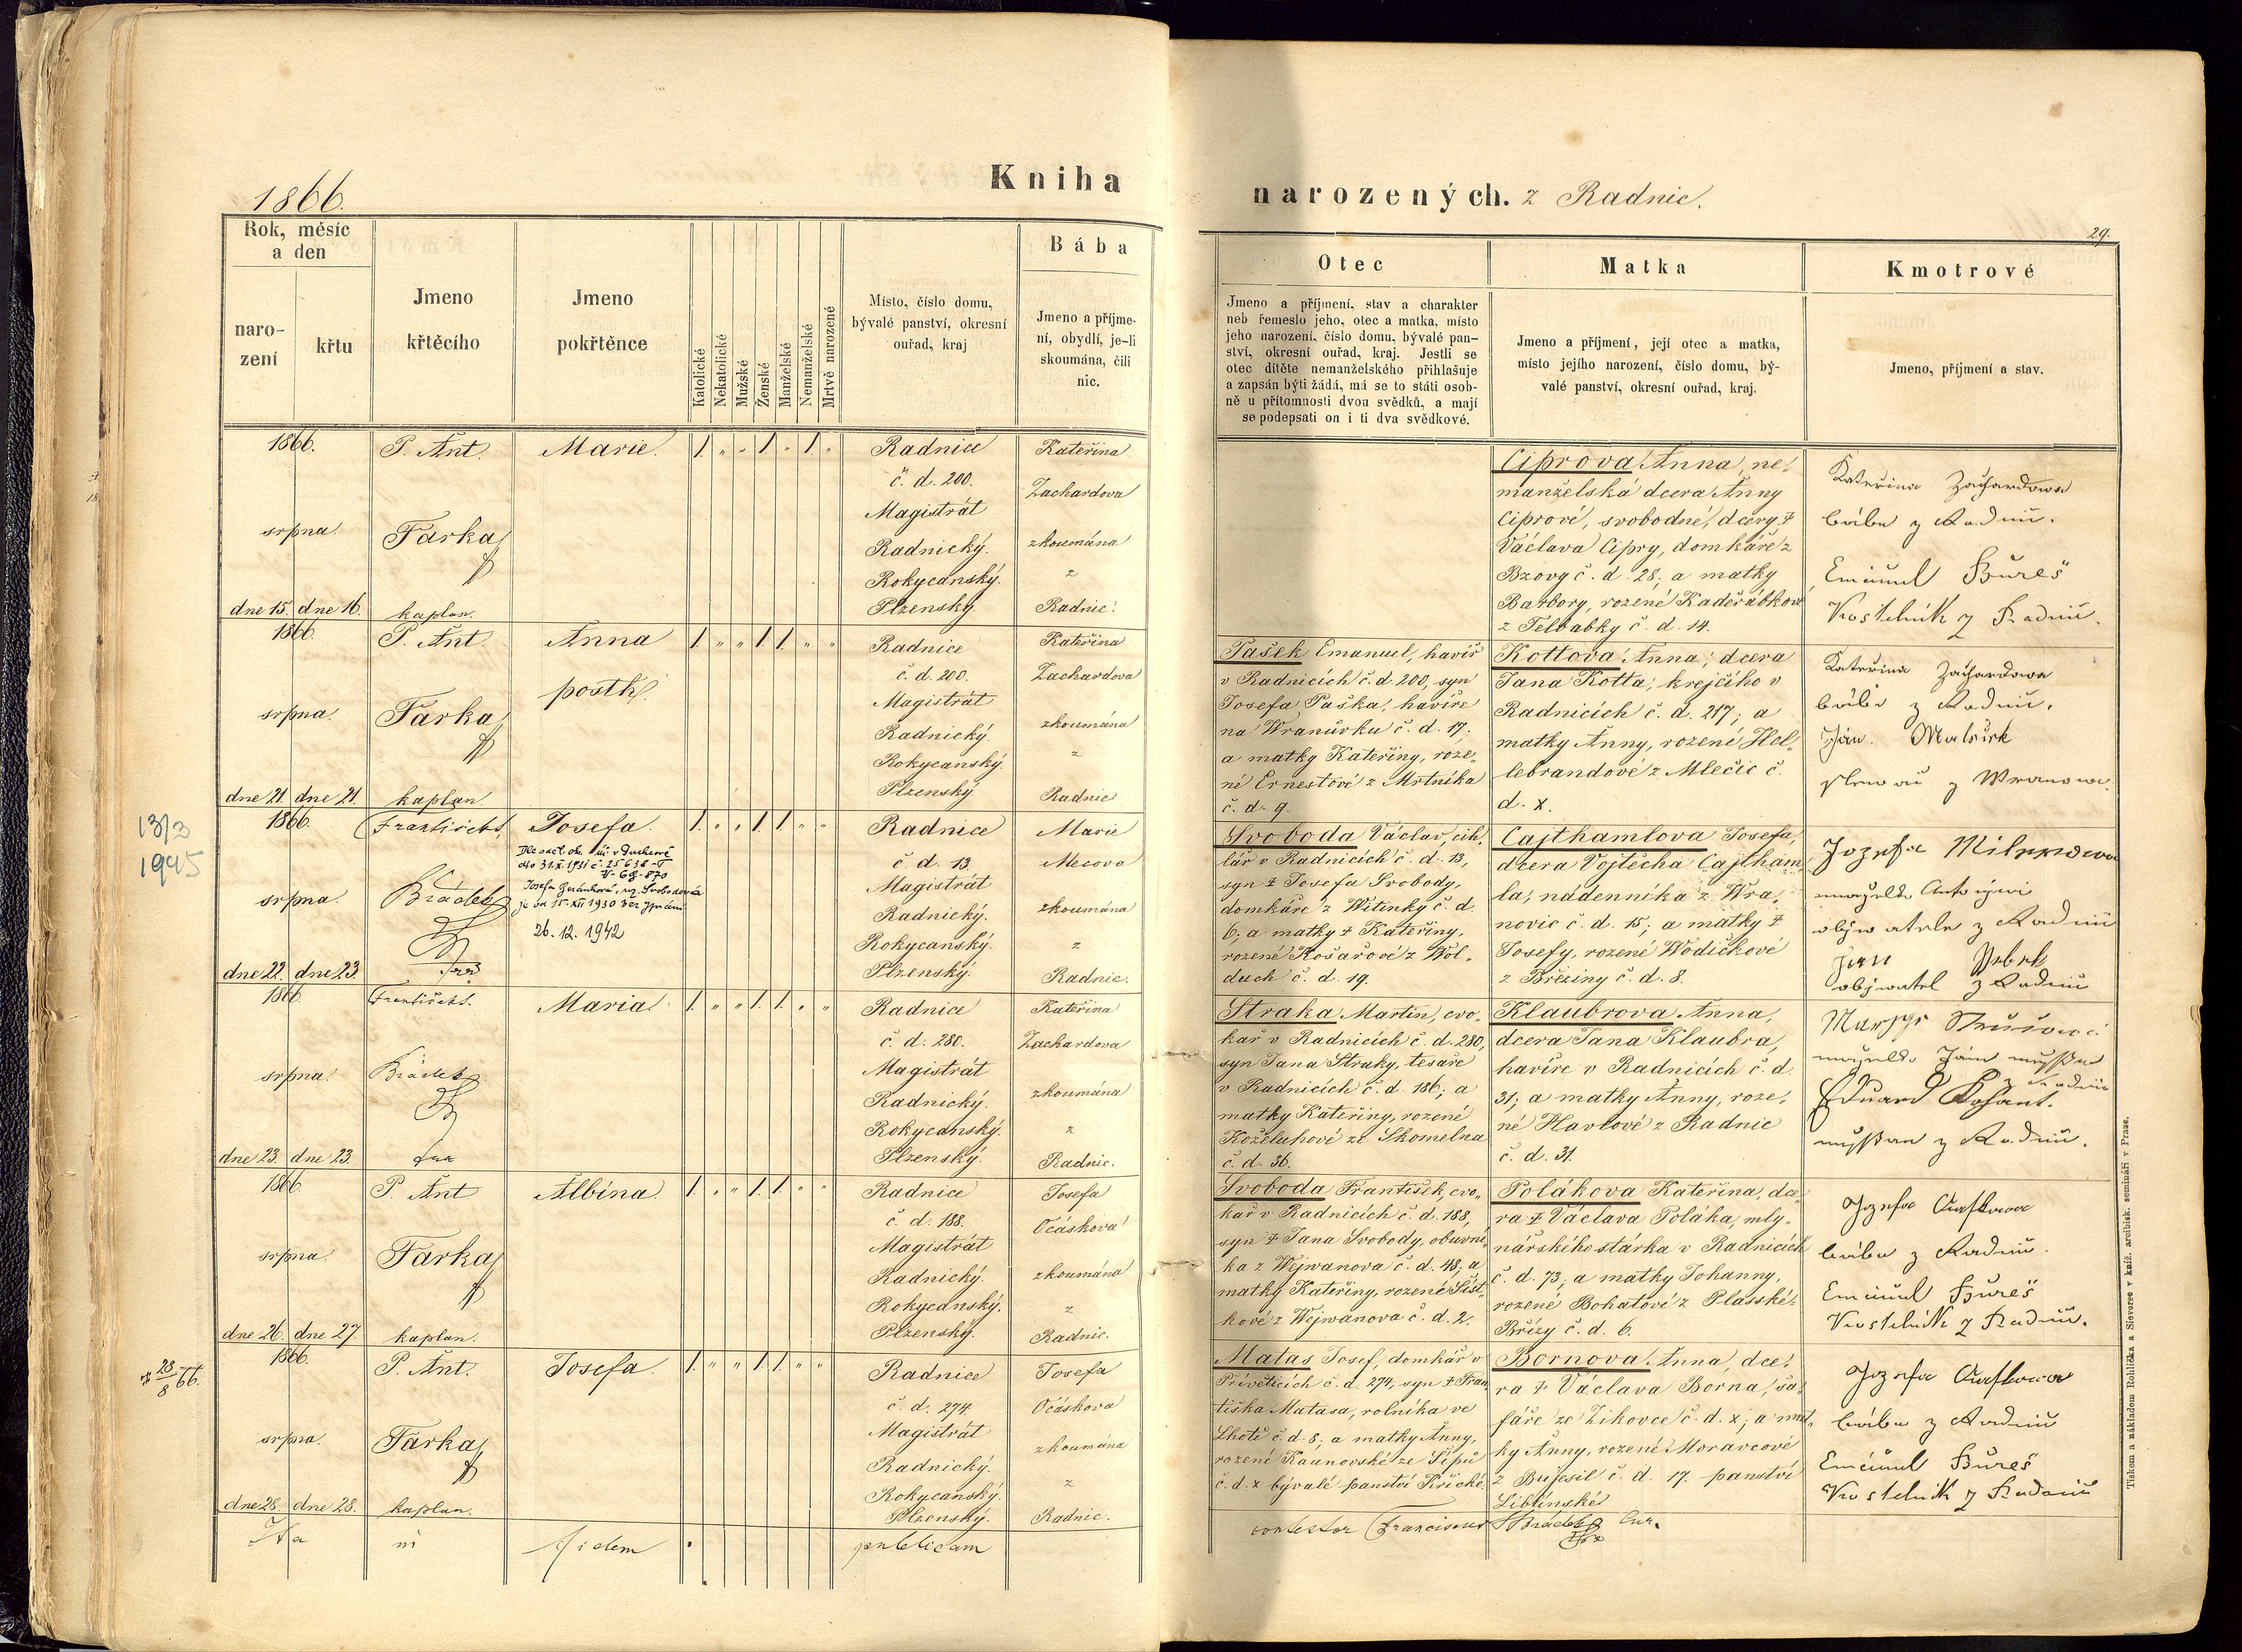 1866.
Kniha
narozených. z Radnic.
29.
Rok, měsíc
a den
naro-
zení
křtu
Jmeno
křtěcího
Jmeno
pokřtěnce
Katolické
Nekatolické
Mužské
Ženské
Manželské
Nemanželské
Mrtvě narozené
Místo, číslo domu,
bývalé panství, okresní
ouřad, kraj
Bába
Jmeno a příjme-
ní, obydlí, je-li
skoumána, čili
nic.
Otec
Jmeno a příjmení, stav a charakter
neb řemeslo jeho, otec a matka, místo
jeho narození, číslo domu, bývalé pan-
ství, okresní ouřad, kraj. Jestli se
otec dítěte nemanželského přihlašuje
a zapsán býti žádá, má se to státi osob-
ně u přítomnosti dvou svědků, a mají
se podepsati on i ti dva svědkové.
Matka
Jmeno a příjmení, její otec a matka,
místo jejího narození, číslo domu, bý-
valé panství, okresní ouřad, kraj.
Kmotrové
Jmeno, příjmení a stav.
1866.
srpna
dne 15. dne 16.
P. Ant.
Farka
kaplan.
Marie.
1. „ „ 1 „ 1. „
Radnice
č. d. 200.
Magistrát
Radnický.
Rokycanský.
Plzenský.
Kateřina
Zachardova
zkoumána
z
Radnic.
Ciprova Anna, ne-
manželská dcera Anny
Ciprové, svobodné, dcery †
Václava Cipry, domkáře z
Bzovy č. d. 28; a matky
Barbory, rozené Kadeřábkové
z Telbabky č. d. 14.
Kateřina Zachardowa
bába z Radnic.
Emanuel Bureš
Kostelník z Radnic.
1866.
srpna.
dne 21. dne 21.
P. Ant.
Farka
kaplan.
Anna
posth.
1. „ „ 1. 1. „ „
Radnice
č. d. 200.
Magistrát
Radnický.
Rokycanský.
Plzenský.
Kateřina
Zachardova
zkoumána
z
Radnic
Pašek Emanuel, havíř
v Radnicích č. d. 200, syn
Josefa Paška, havíře
na Wranůvku č. d. 17;
a matky Kateřiny, roze-
né Ernestové z Mrtníka
č. d. 9.
Kottova Anna, dcera
Jana Kotta, krejčího v
Radnicích č. d. 217; a
matky Anny, rozené Hol-
lebrandové z Mlečic č.
d. x.
Kateřina Zachardowa
bába z Radnic.
Jan
13/3
1945
1866.
srpna.
dne 22. dne 23.
František
Brádek
Josefa.
26. 12. 1942
1. „ „ 1. 1. „ „
Radnice
č. d. 13.
Magistrát
Radnický.
Rokycanský.
Plzenský.
Marie
Mecova
zkoumána
z
Radnic.
Svoboda Václav, cih-
lář v Radnicích č. d. 13,
syn † Josefa Svobody,
domkáře z Witinky č. d.
6; a matky † Kateřiny,
rozené Košařové z Wol-
duch č. d. 19.
Cajthamlova Josefa,
dcera Vojtěcha Cajtham-
la, nádenníka z Wra-
novic č. d. 15; a matky †
Josefy, rozené Wodičkové
z Březiny č. d. 8.
1866.
srpna.
dne 23. dne 23.
František
Brádek
Maria
1. „ „ 1. 1. „ „
Radnice
č. d. 280.
Magistrát
Radnický.
Rokycanský.
Plzenský.
Kateřina
Zachardova
zkoumána
z
Radnic.
Straka Martin, cvo-
kař v Radnicích č. d. 280,
syn Jana Straky, tesaře
v Radnicích č. d. 186; a
matky Kateřiny, rozené
Koželuhové ze Skomelna
č. d. 36.
Klaubrova Anna,
dcera Jana Klaubra,
havíře v Radnicích č. d.
31; a matky Anny, roze-
né Havlové z Radnic
č. d. 31.
1866.
srpna.
dne 26. dne 27.
P. Ant
Farka
kaplan.
Albína
1. „ „ 1. 1. „ „
Radnice
č. d. 188.
Magistrát
Radnický.
Rokycanský.
Plzenský.
Josefa
Očáskova
zkoumána
z
Radnic.
Svoboda František, cvo-
kař v Radnicích č. d. 188,
syn † Jana Svobody, obuvní-
ka z Wejwanova č. d. 48; a
matky Kateřiny, rozené Šist-
kové z Wejwanova č. d. 2.
Polákova Kateřina, dce-
ra † Václava Poláka, mly-
nářského stárka v Radnicích
č. d. 73; a matky Johanny,
rozené Bohatové z Plasské
Břízy č. d. 6.
bába z Radnic.
Emanuel Bureš
Kostelník z Radnic.
† 28/8 66.
1866.
srpna.
dne 28. dne 28.
P. Ant.
Farka
kaplan.
Josefa.
1. „ „ 1. 1. „ „
Radnice
č. d. 274.
Magistrát
Radnický.
Rokycanský.
Plzenský.
Josefa
Očáskova
zkoumána
z
Radnic.
Matas Josef, domkář v
Přívěticích č. d. 274, syn † Fran-
tiška Matasa, rolníka ve
Lhotě č. d. 8; a matky Anny,
rozené Kaunovské ze
č. d. x bývalé panství
Bornova Anna, dce-
ra † Václava Borna, ša-
fáře ze Zikovce č. d. x; a mat-
ky Anny, rozené Moravcové
z Bujesil č. d. 17. panství
Liblínské
bába z Radnic
Emanuel Bureš
Kostelník z Radnic
fidem publicam
contestor Franciscus Brádek Cur.
Tiskem a nákladem Rohlíčka a Sieverse v kníž. arcibisk. semináři v Praze.